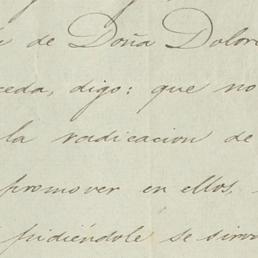 de Doña Dolor
ceda, digo: que no
la radicacion de
promover en ellos,
pidiéndole se sirva